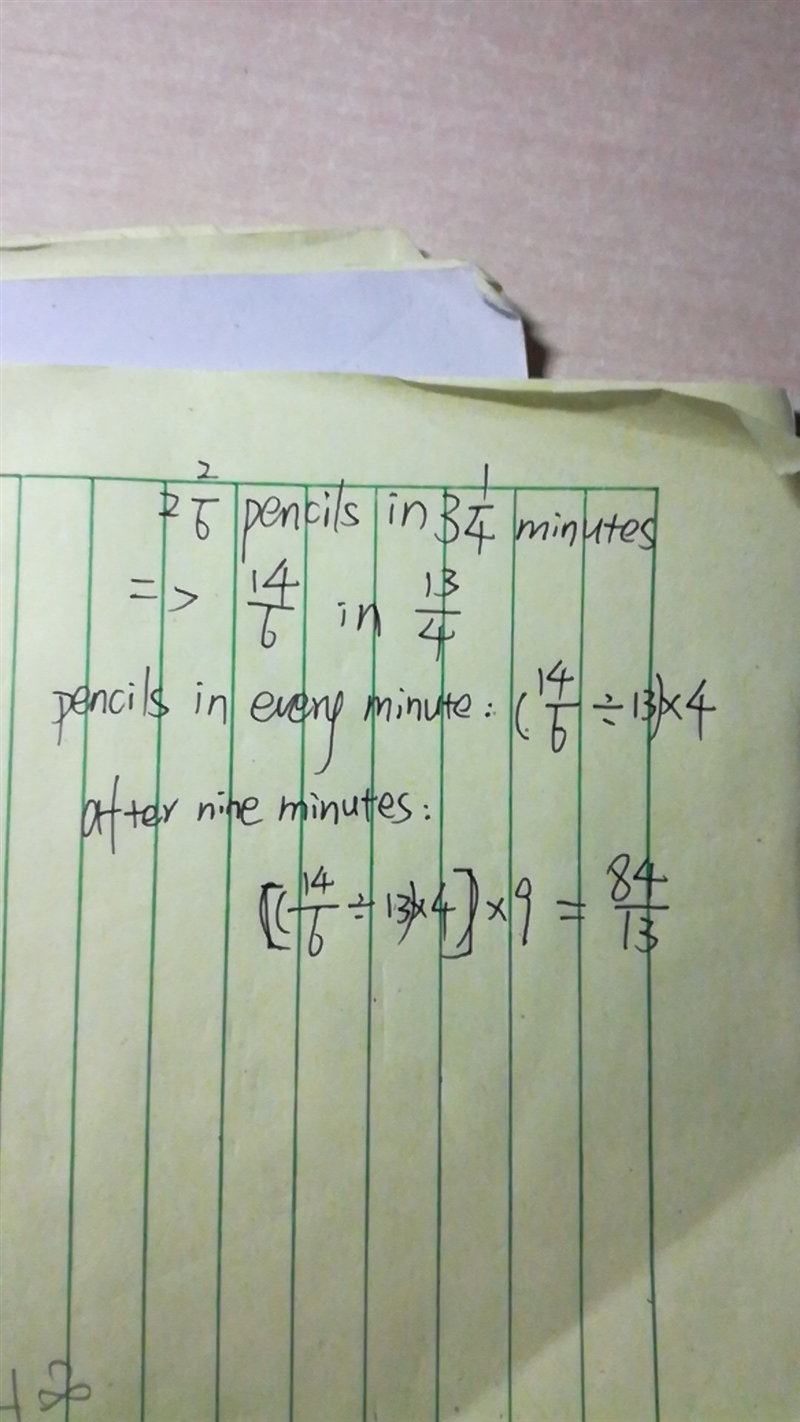 2 2/6 pencils in 3 1/4 minutes
=> 14/6 in 13/4
pencils in every minute: (14/6 ÷ 13)×4
after nine minutes:
[(14/6 ÷ 13)×4] × 9 = 84/13